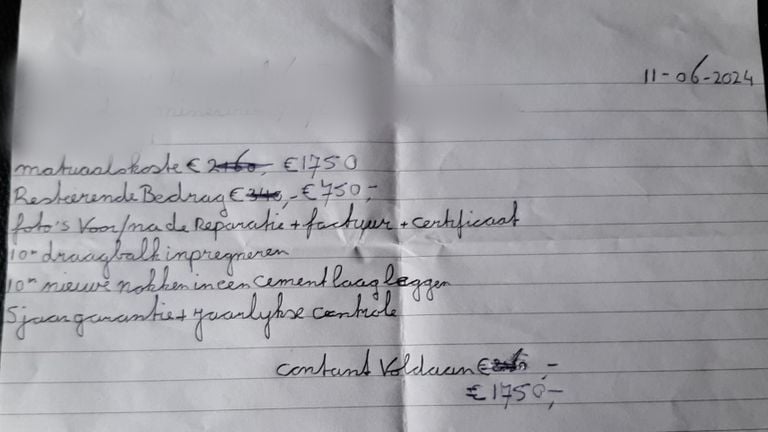 11-06-2024
matriaalskoste € 2460, €1750
Resterende Bedrag € 340,- €750,-
foto's Voor/na de Reparatie + factuur + certificaat
10m draagbalk inpregneren
10m nieuwe nokken in een cement laag leggen
5 jaar garantie + jaarlykse controle
contant Voldaan € ,-
€1750,-